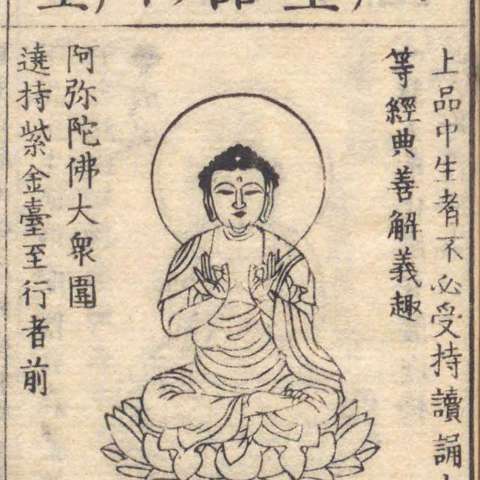 上品中生者不必受持讀誦
等經典善解義趣
阿弥陀佛大衆圍
遶持紫金臺至行者前